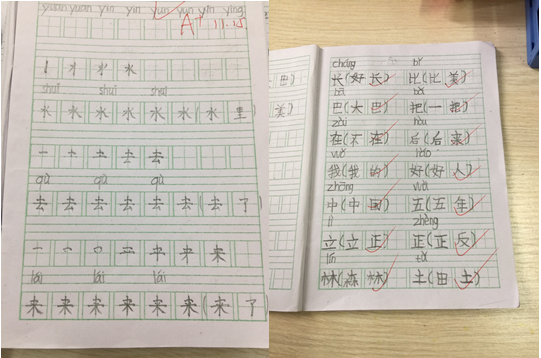 yuán yuǎn yīn yín yūn yún yīn yíng
A+ 11.15
水
shuǐ shuǐ shuǐ
水 水 水 水 水 水 ( 水 里
一 十 土 去 去
qù qù qù
去 去 去 去 去 去 ( 去 了
来
lái lái lái
来 来 来 来 来 来 ( 来 了
巴 )
美 )
cháng bǐ
长 ( 好 长 ) 比 ( 比 美 )
bā bǎ
巴 ( 大 巴 ) 把 ( 一 把 )
zài hòu
在 ( 不 在 ) 后 ( 后 来 )
wǒ hǎo
我 ( 我 的 ) 好 ( 好 人 )
zhōng wǔ
中 ( 中 国 ) 五 ( 五 年 )
lì zhèng
立 ( 立 正 ) 正 ( 正 反 )
lín tǔ
林 ( 森 林 ) 土 ( 田 土 )